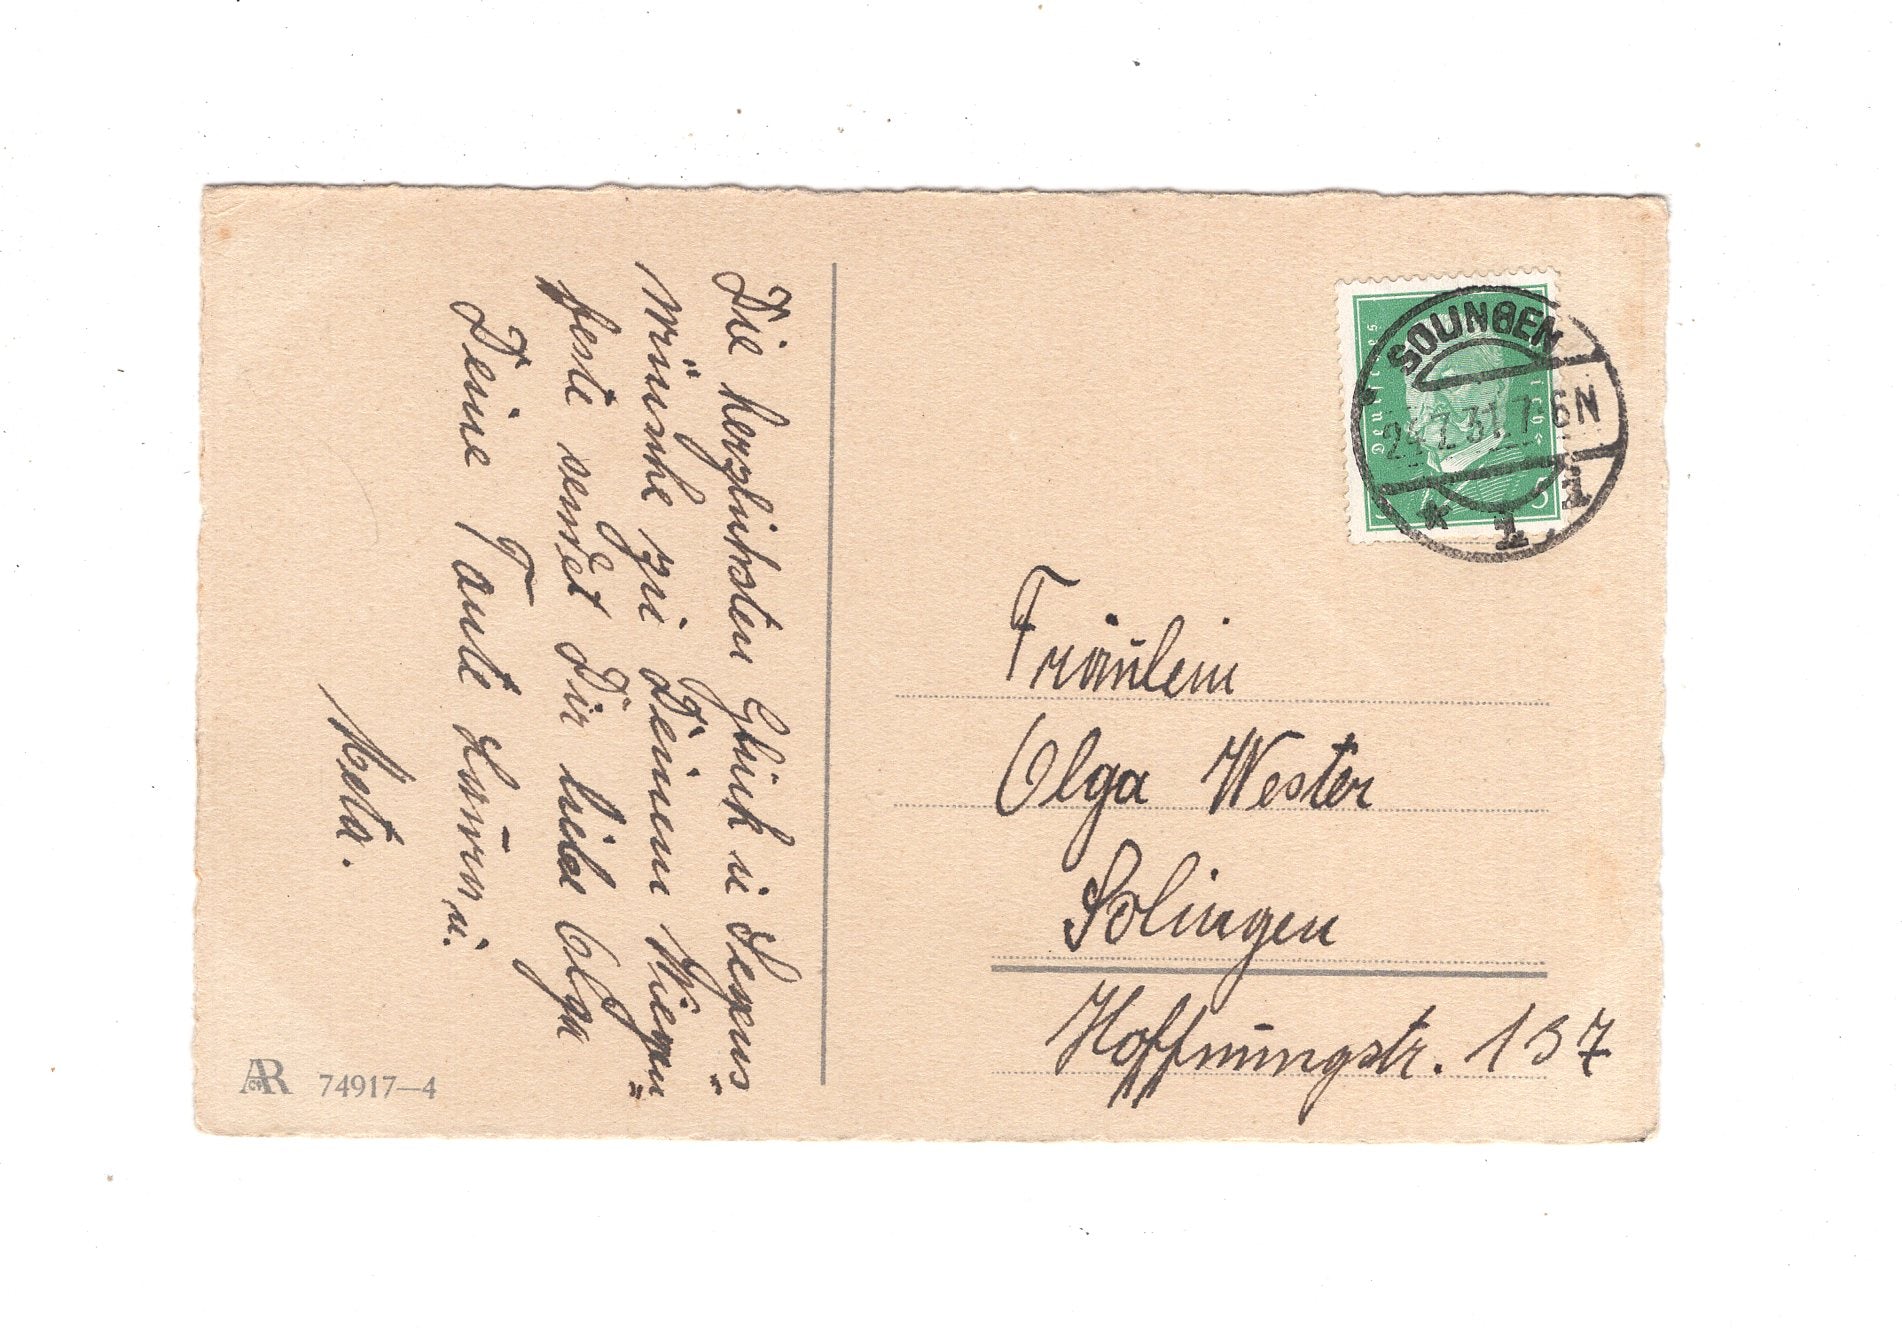 Die herzlichsten Glück u Segens=
wünsche zu Deinem Wiegen=
feste sendet Dir liebe Olga
Deine Tante Laura u.
Meta.
SOLINGEN
24.7.31. 7-6N
* 1 1
Deutsches Reich
Fräulein
Olga Wester
Solingen
Hoffnungstr. 137
AR 74917—4